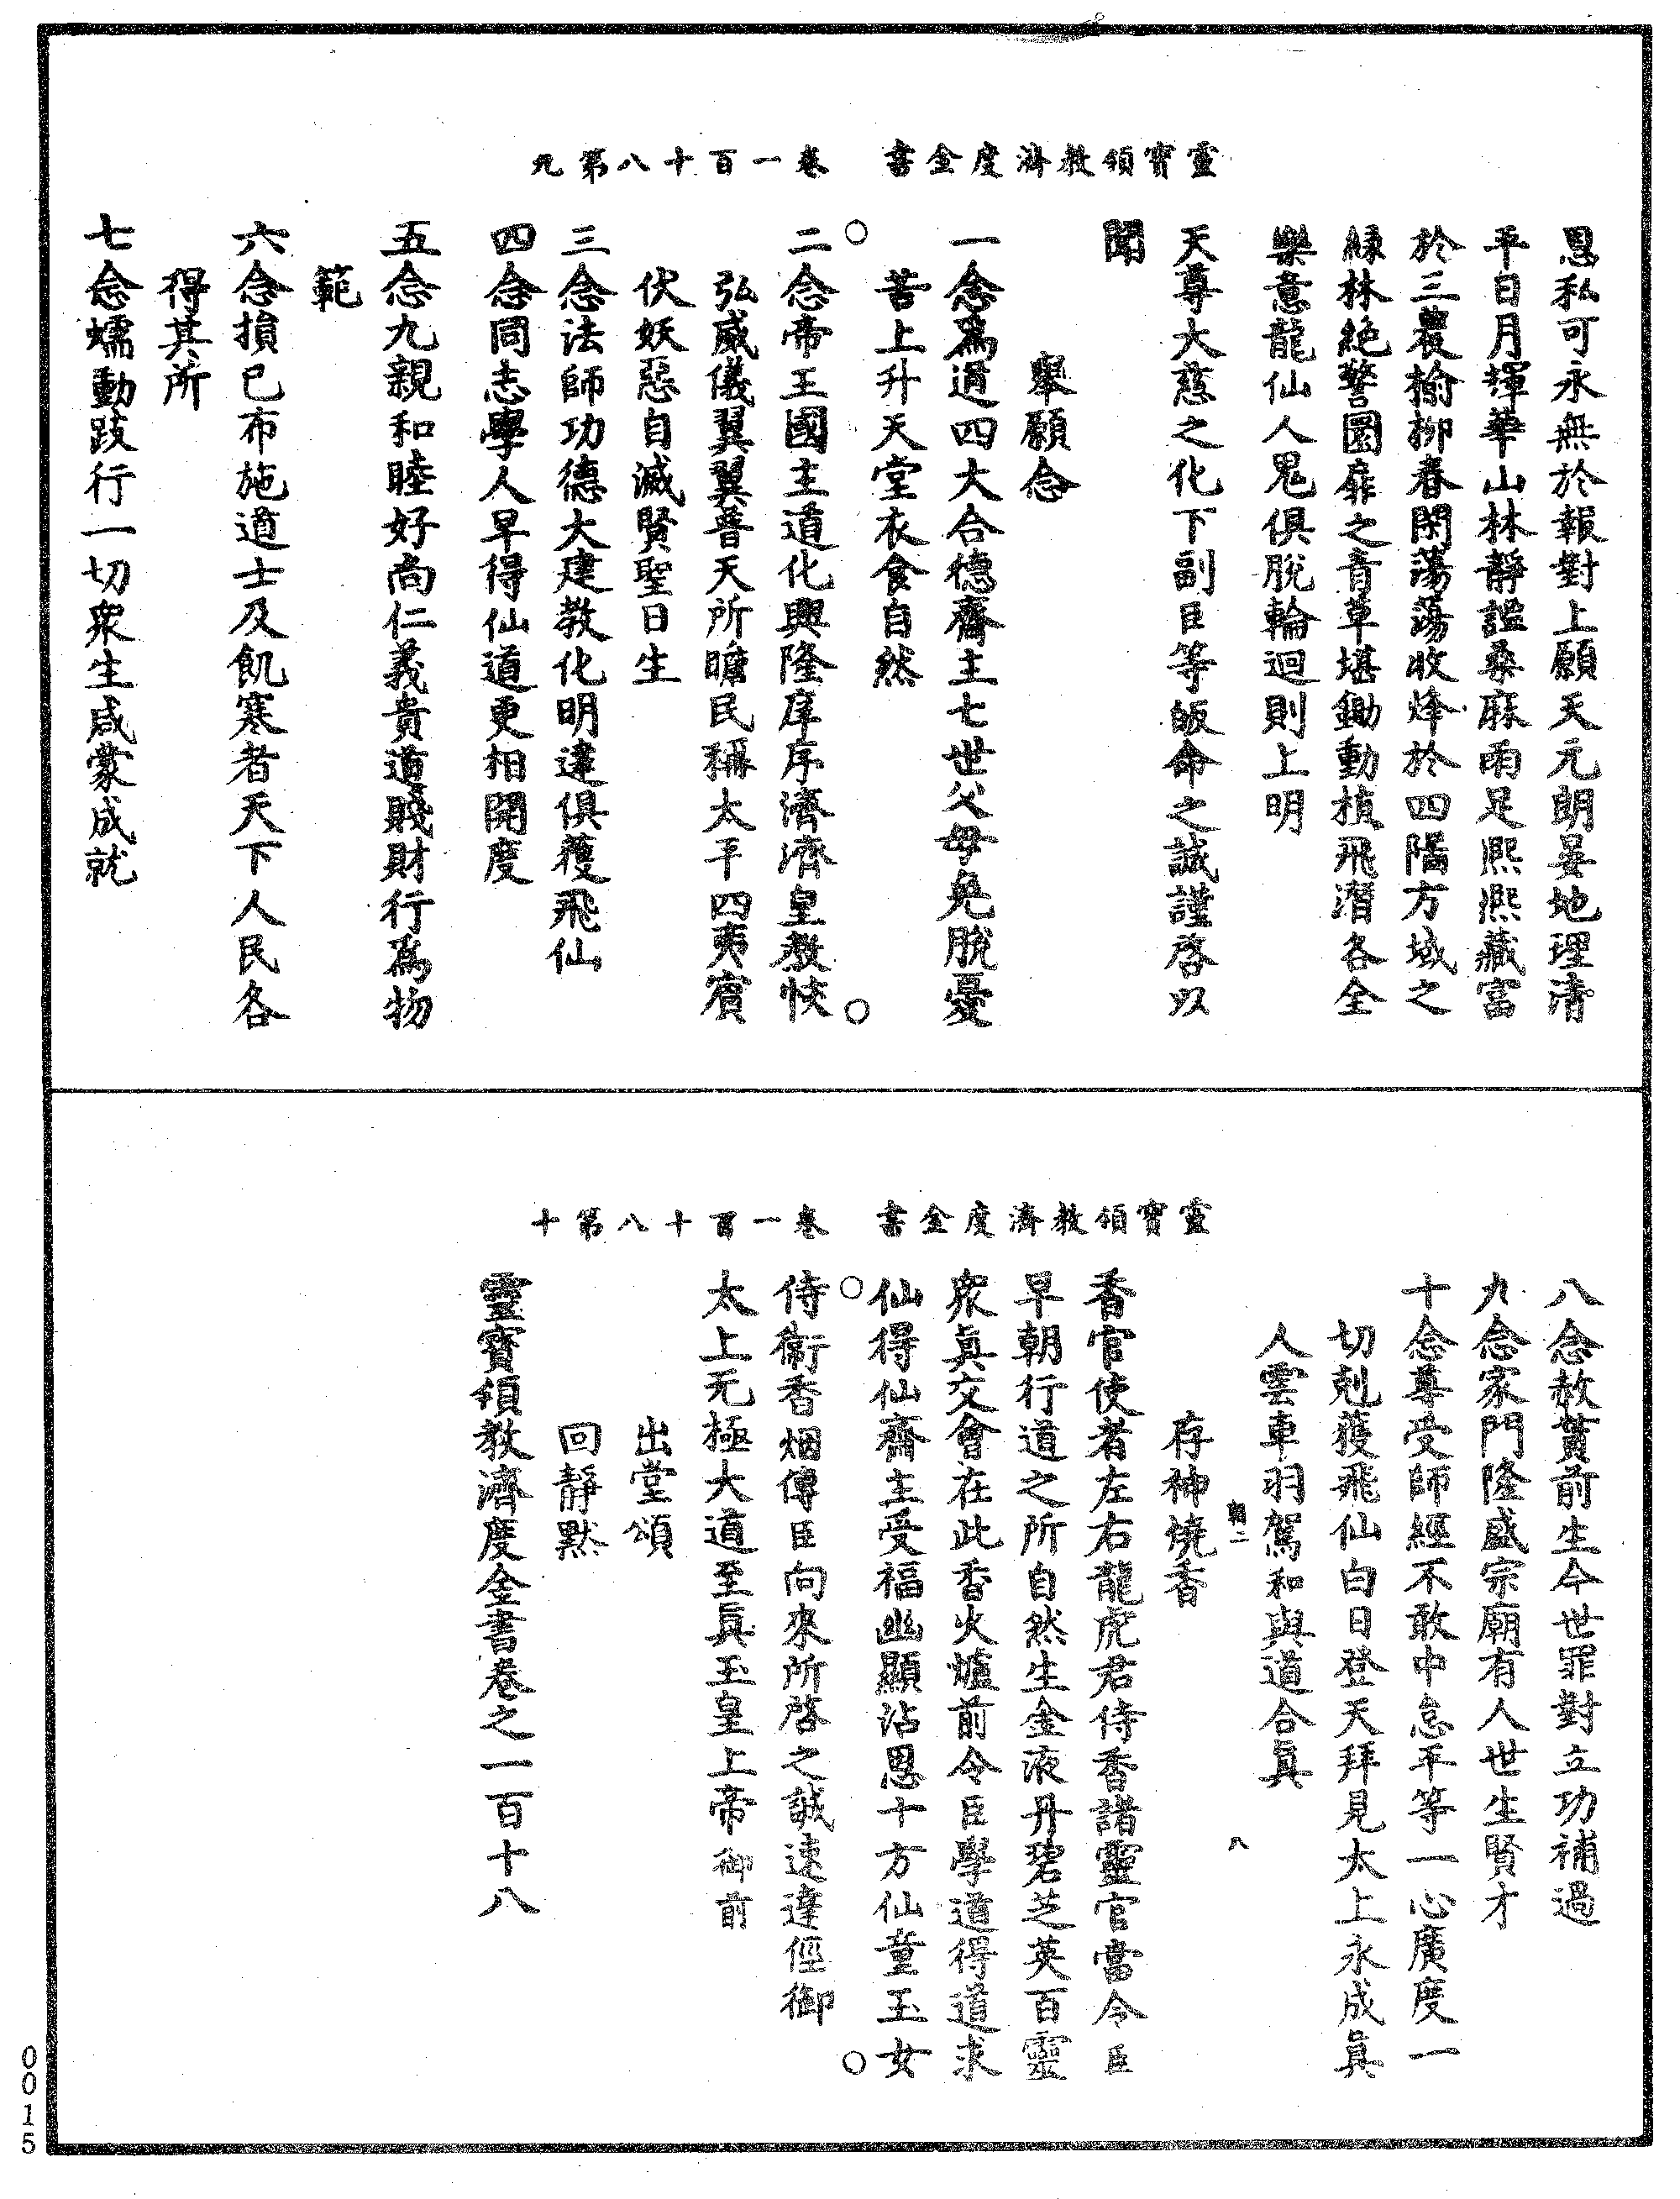 靈寶領教濟度金書　卷一百十八第九
恩私可永無於報對上願天元朗晏地理清
平日月揮華山林靜謐桑麻雨足熙熙藏富
於三農榆柳春閑蕩蕩收烽於四隅方域之
綠林絕警圜扉之青草堪鋤動植飛潛各全
樂意龍仙人鬼俱脫輪迴則上明
天尊大慈之化下副臣等皈命之誠謹啓以
聞
舉願念
一念爲道四大合德齋主七世父母免脫憂
苦上升天堂衣食自然
○　○
二念帝王國主道化興隆庠序濟濟皇教恢
弘威儀翼翼普天所瞻民稱太平四夷賓
伏妖惡自滅賢聖日生
三念法師功德大建教化明達俱獲飛仙
四念同志學人早得仙道更相開度
五念九親和睦好尚仁義貴道賤財行爲物
範
六念損己布施道士及飢寒者天下人民各
得其所
七念蠕動跂行一切衆生咸蒙成就
靈寶領教濟度金書　卷一百十八第十
八念赦貰前生今世罪對立功補過
九念家門隆盛宗廟有人世生賢才
十念尊受師經不敢中怠平等一心廣度一
切剋獲飛仙白日登天拜見太上永成眞
人雲車羽駕和與道合眞
二　八
存神燒香
香官使者左右龍虎君侍香諸靈官當令臣
早朝行道之所自然生金液丹碧芝英百靈
衆眞交會在此香火爐前令臣學道得道求
仙得仙齋主受福幽顯沾恩十方仙童玉女
○　○
侍衛香烟傳臣向來所啓之誠速達徑御
太上无極大道至眞玉皇上帝御前
出堂頌
回靜默
靈寶領教濟度金書卷之一百十八
0015